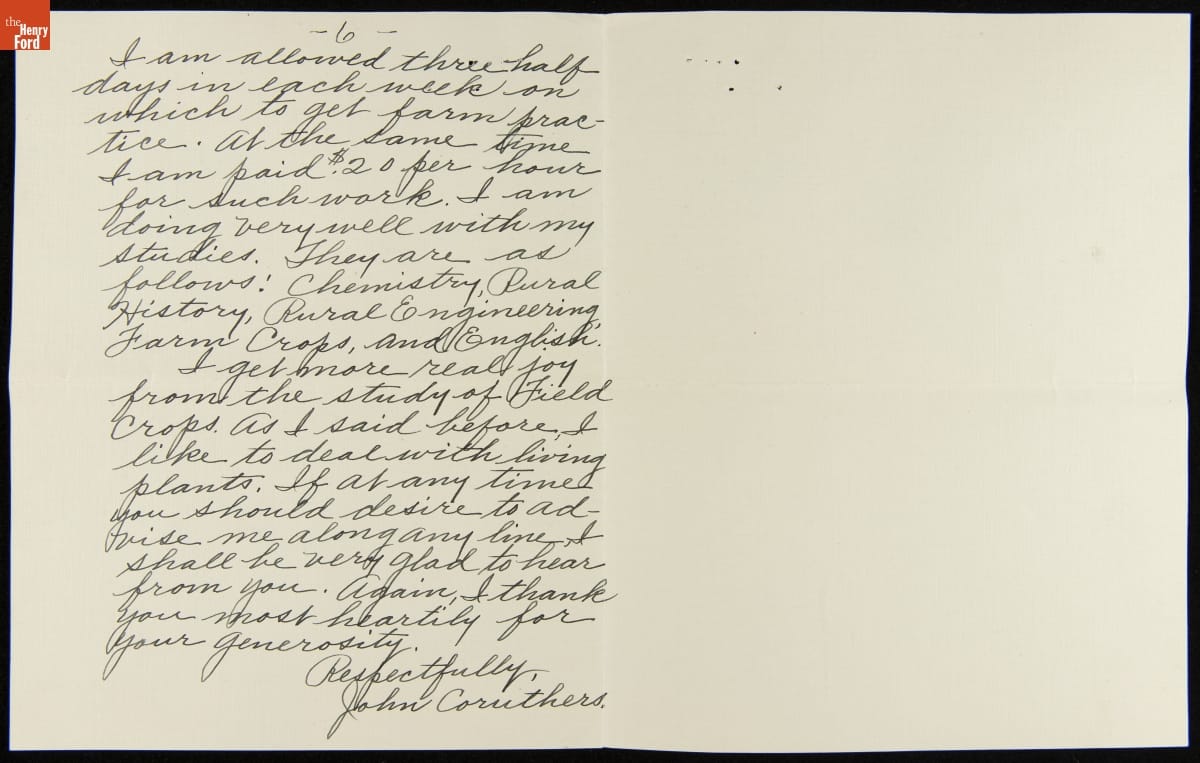 the
Henry
Ford
- 6 -
I am allowed three half
days in each week on
which to get farm prac-
tice. At the same time
I am paid $.20 per hour
for such work. I am
doing very well with my
studies. They are as
follows: Chemistry, Rural
History, Rural Engineering,
Farm Crops, and English.
I get more real joy
from the study of Field
Crops. As I said before, I
like to deal with living
plants. If at any time
you should desire to ad-
vise me along any line, I
shall be very glad to hear
from you. Again, I thank
you most heartily for
your generosity.
Respectfully,
John Coruthers.